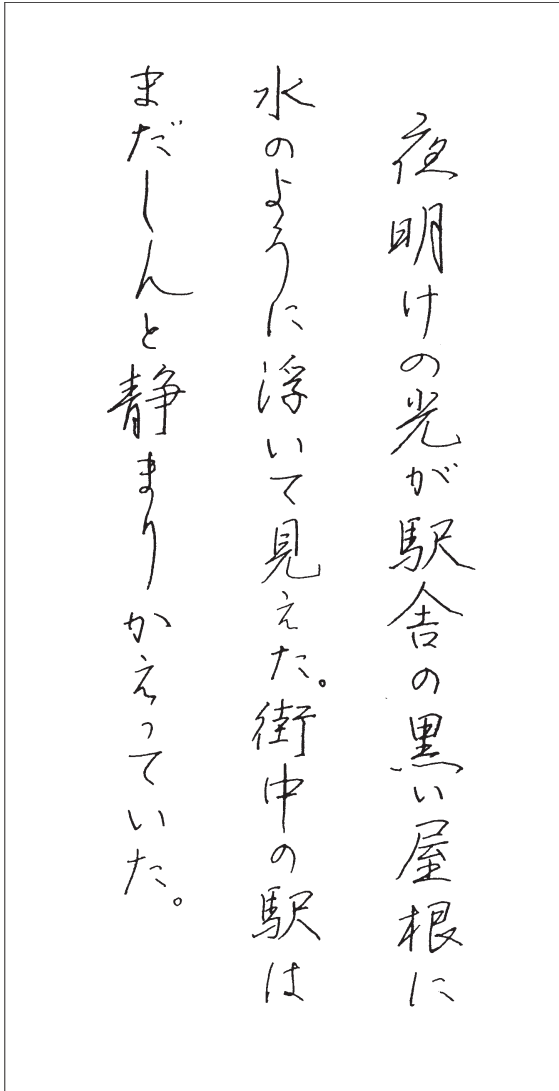 夜明けの光が駅舎の黒い屋根に
水のように浮いて見えた。街中の駅は
まだしんと静まりかえっていた。